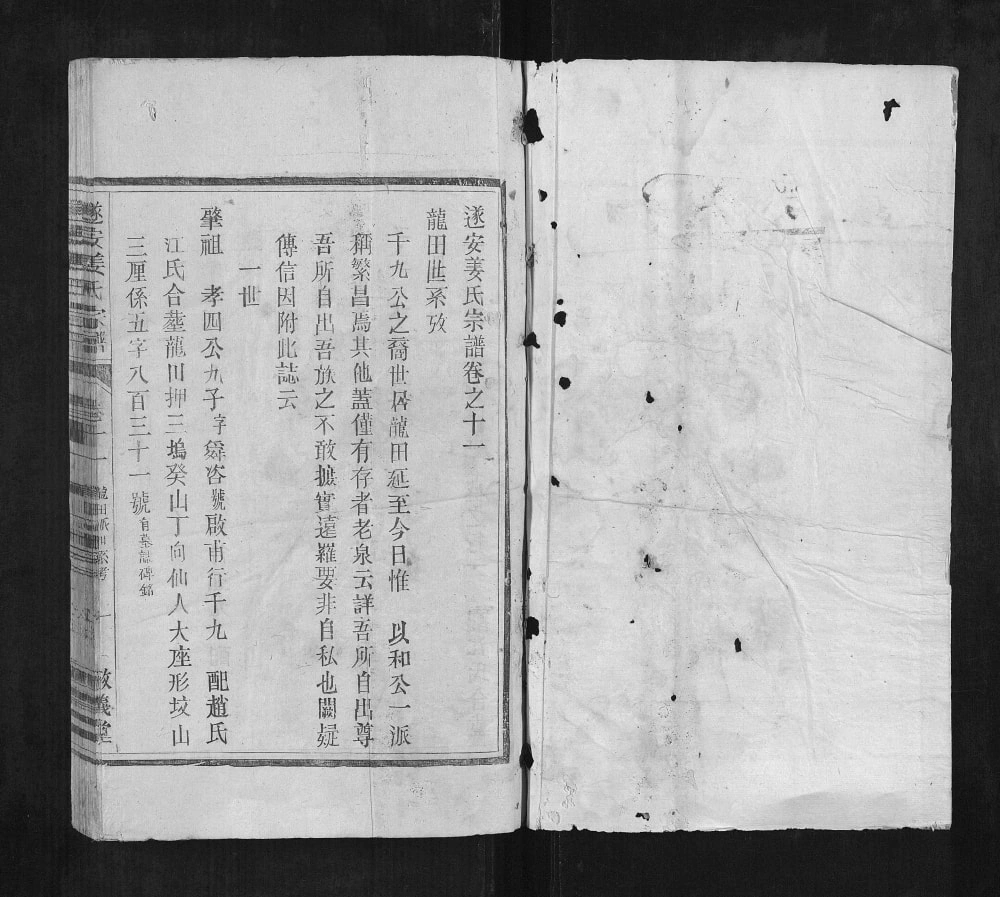 遂安姜氏宗譜卷之十一
龍田世系攷
千九公之裔世居龍田延至今日惟 以和公一派
稱繁昌焉其他蓋僅有存者老泉云詳吾所自出尊
吾所自出吾族之不敢摭實遠羅要非自私也闕疑
傳信因附此誌云
一世
肇祖 孝四公九子字舜咨號啟甫行千九 配趙氏
江氏合塟龍田押三塢癸山丁向仙人大座形坟山
三厘係五字八百三十一號有墓誌碑銘
遂安姜氏宗譜
龍田派世系考
敬義堂